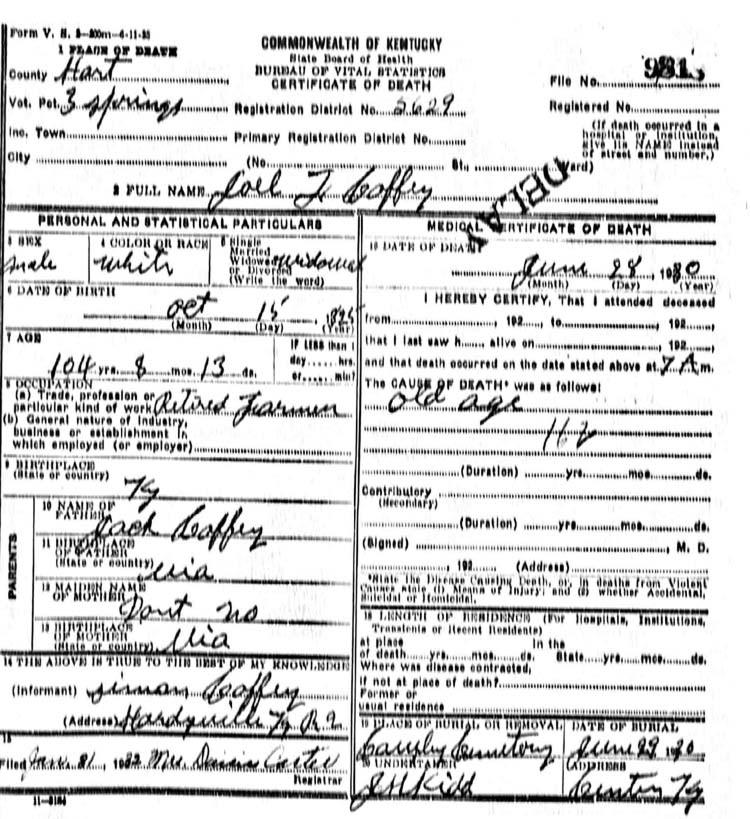 Form V. S. 3-200m-4-11-30
COMMONWEALTH OF KENTUCKY
State Board of Health
BUREAU OF VITAL STATISTICS
CERTIFICATE OF DEATH
1 PLACE OF DEATH
County Hart
File No. 981
Vot. Pct. 3 Springs
Registration District No. 5629
Registered No.
Inc. Town
Primary Registration District No.
(If death occurred in a hospital or institution, give its NAME instead of street and number.)
City (No. St., Ward)
DELAY
2 FULL NAME Joel T. Coffey
PERSONAL AND STATISTICAL PARTICULARS
3 SEX male
4 COLOR OR RACE white
5 Single Married Widowed or Divorced (Write the word) widowed
6 DATE OF BIRTH
Oct 15, 1825
(Month) (Day) (Year)
7 AGE
104 yrs. 8 mos. 13 ds.
IF LESS than 1 day hrs. or min?
8 OCCUPATION
(a) Trade, profession or particular kind of work Retired Farmer
(b) General nature of industry, business or establishment in which employed (or employer)
9 BIRTHPLACE
(State or country) Ky
PARENTS
10 NAME OF FATHER Coffey
11 BIRTHPLACE OF FATHER
(State or country)
12 MAIDEN NAME OF MOTHER Dont no
13 BIRTHPLACE OF MOTHER
(State or country)
14 THE ABOVE IS TRUE TO THE BEST OF MY KNOWLEDGE
(Informant) Coffey
(Address) Hardyville Ky R 2
15
Filed Jan. 21, 1932 Mrs. Carter
Registrar
11-3184
MEDICAL CERTIFICATE OF DEATH
16 DATE OF DEATH
June 28, 1930
(Month) (Day) (Year)
I HEREBY CERTIFY, That I attended deceased
from, 192, to, 192,
that I last saw h alive on, 192,
and that death occurred on the date stated above at 7 A m.
The CAUSE OF DEATH* was as follows:
old age
(Duration) yrs. mos. ds.
Contributory
(Secondary)
(Duration) yrs. mos. ds.
(Signed), M. D.
, 192 (Address)
*State the Disease Causing Death, or, in deaths from Violent Causes state (1) Means of Injury; and (2) whether Accidental, Suicidal or Homicidal.
18 LENGTH OF RESIDENCE (For Hospitals, Institutions, Transients or Recent Residents)
At place of death yrs. mos. ds. In the State yrs. mos. ds.
Where was disease contracted,
if not at place of death?
Former or
usual residence
19 PLACE OF BURIAL OR REMOVAL
Cemetery
DATE OF BURIAL
June 29 1930
20 UNDERTAKER
Kidd
ADDRESS
Ky